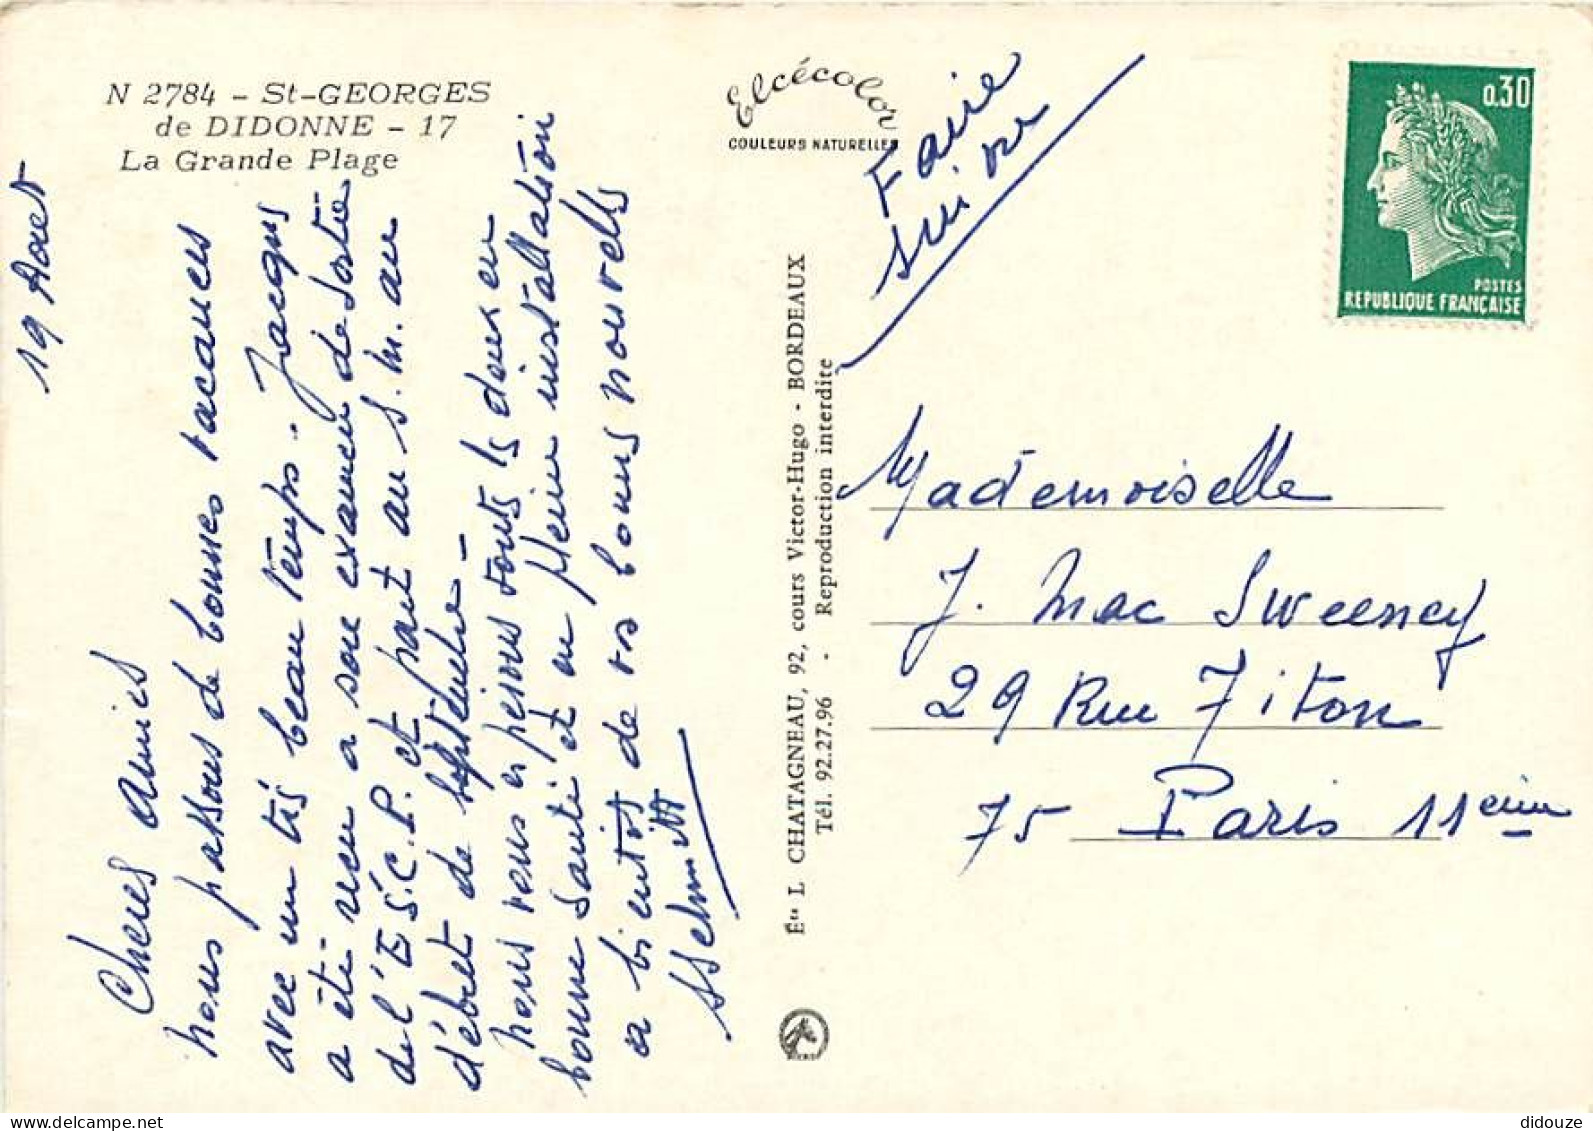 N 2784 - St-GEORGES
de DIDONNE - 17
La Grande Plage
19 Aout
Cheres Amies
nous passons de bonnes vacances
avec un très beau temps. Jacques
a été reçu a son examen de sortie
de l'E.S.C.P. et part au S.M. au
début de septembre -
nous vous espérons touts les deux en
bonne santé et en pleine installation
a bientot de vos bonnes nouvelles
Elcécolor
COULEURS NATURELLES
Faire
suivre
0,30
POSTES
REPUBLIQUE FRANÇAISE
Ets L CHATAGNEAU, 92, cours Victor-Hugo - BORDEAUX
Tél. 92.27.96 - Reproduction interdite
Mademoiselle
J. Mac Sweeney
29 Rue Titon
75 Paris 11ème
didouze